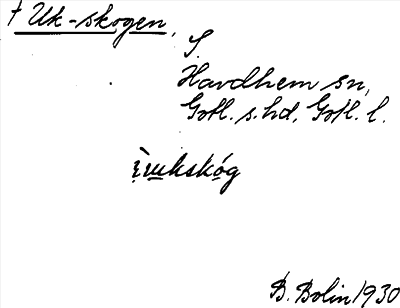 † Uk-skogen,
S.
Hardhem sn,
Gotl. s. hd, Gotl. l.
ukskóg
B. Bolin 1930